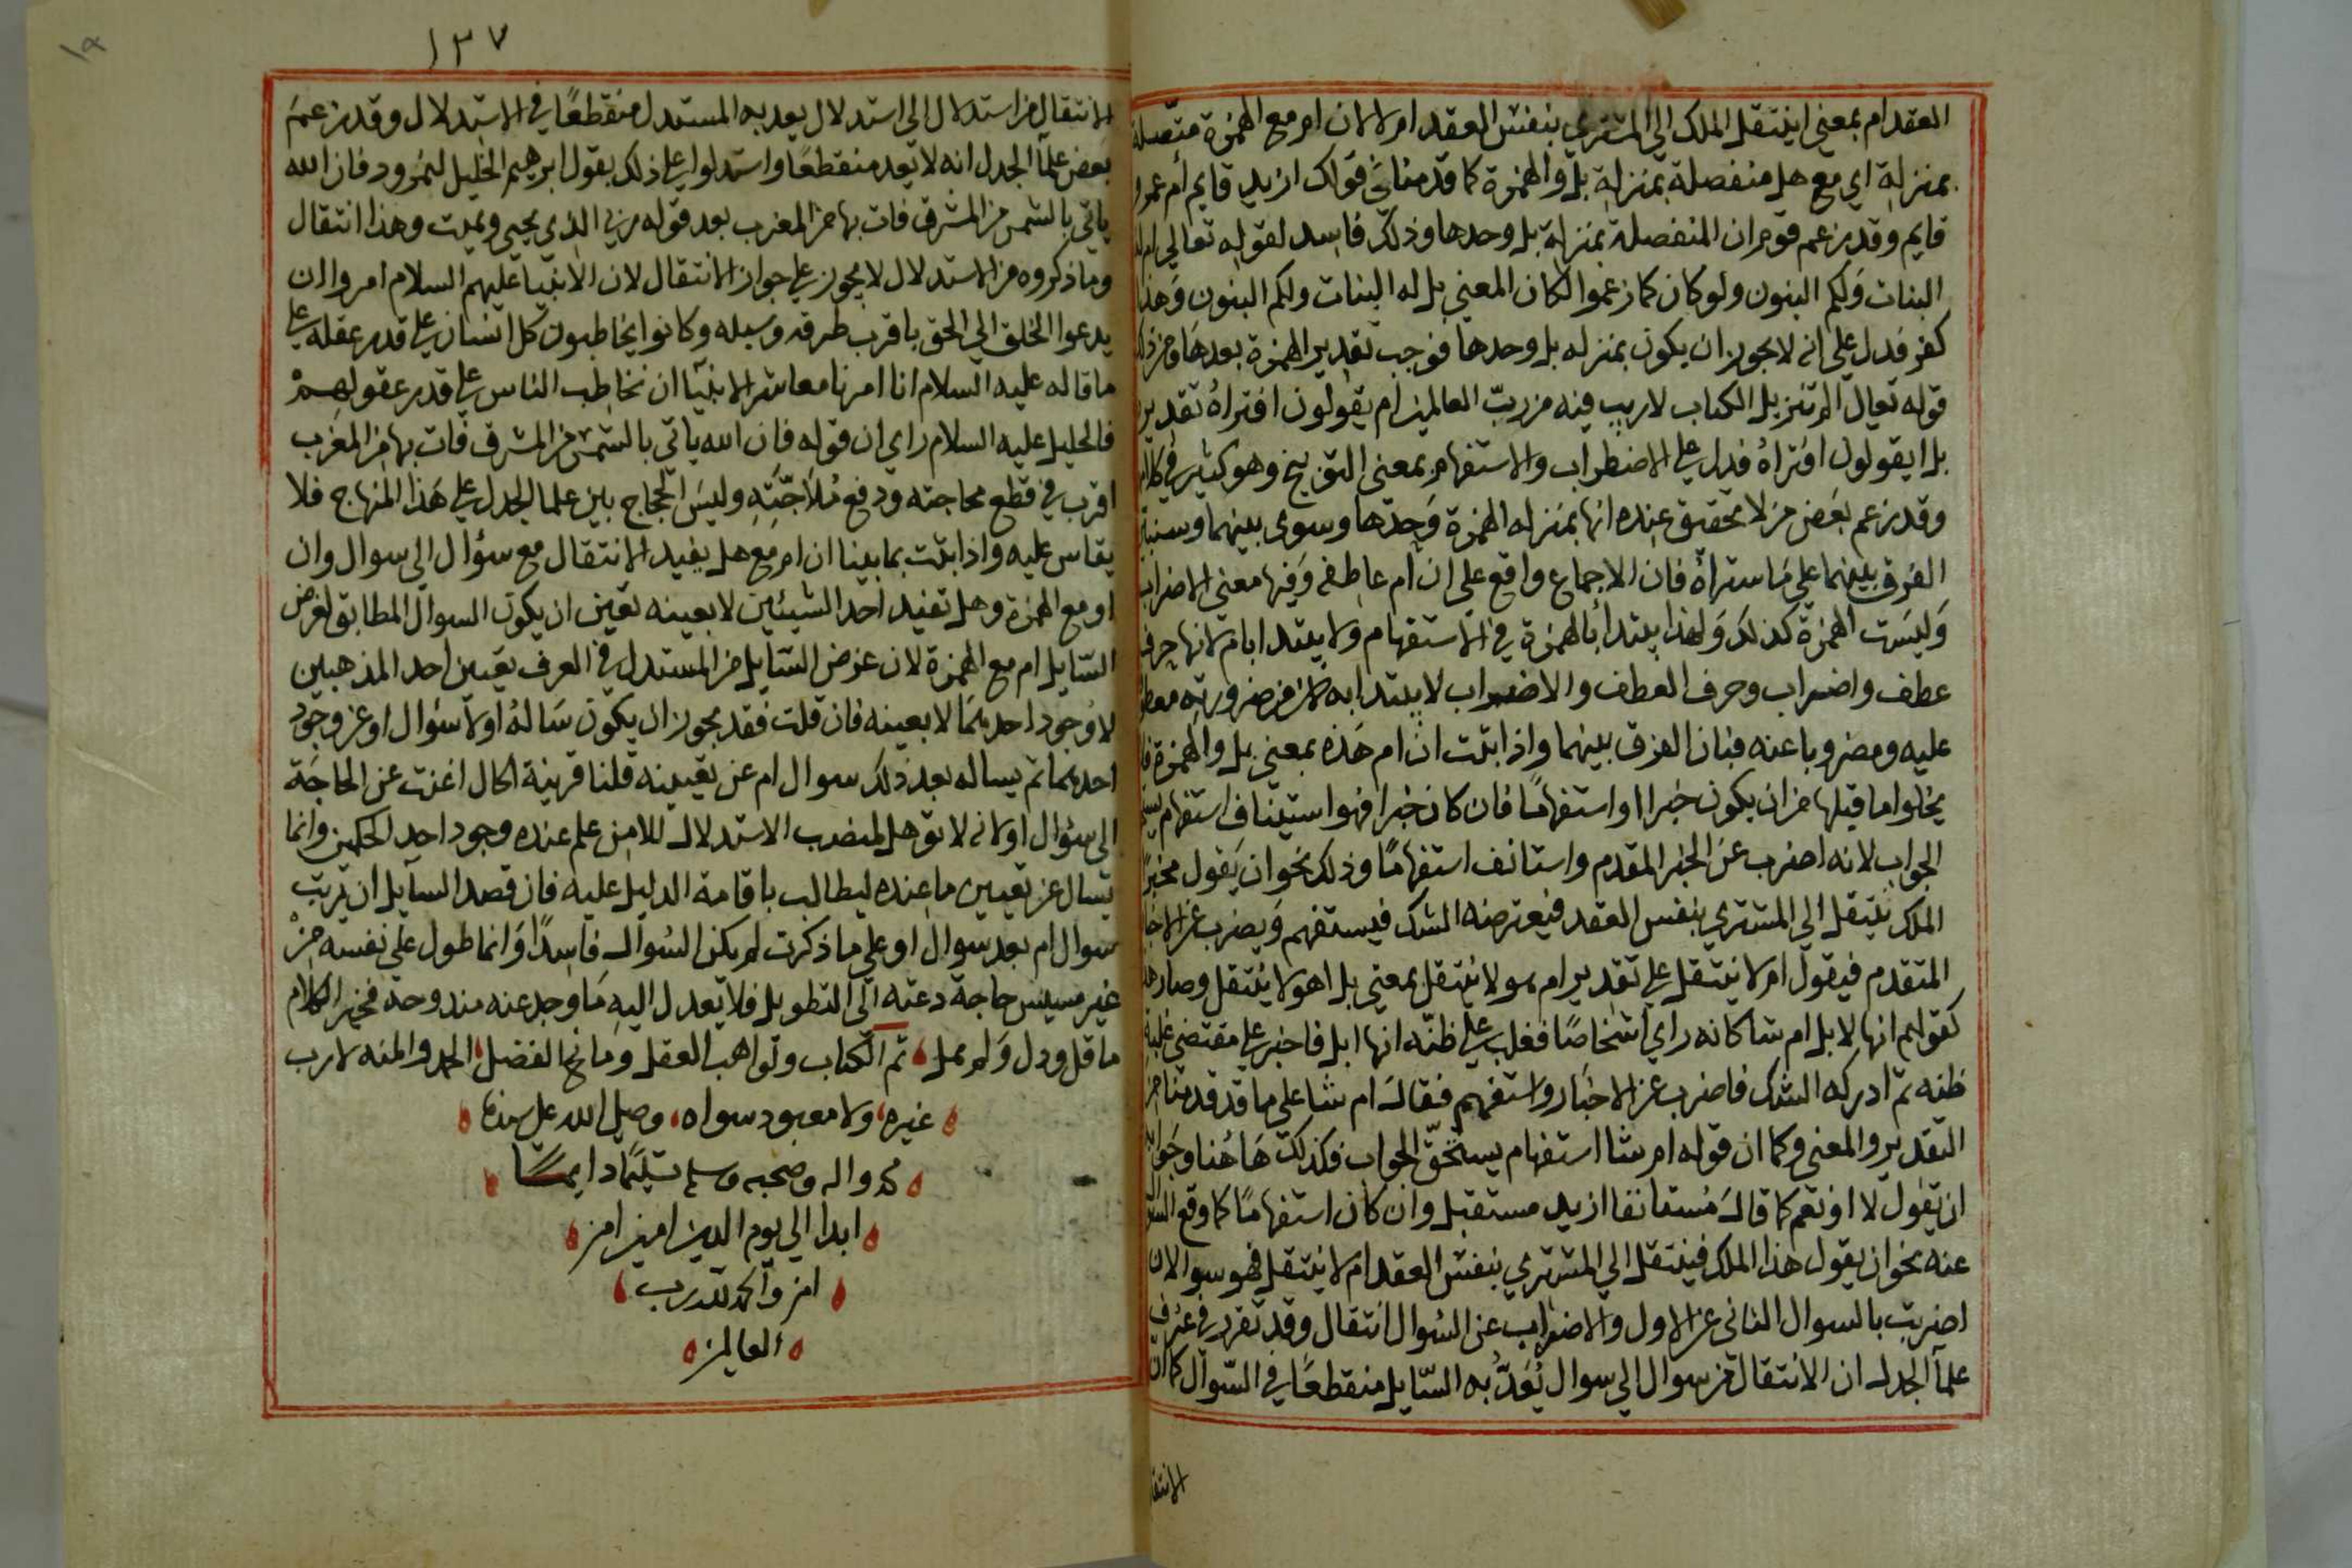 العقد ام بمعني اينتقل الملك الي المشتري بنفس العقد ام لا لان ام مع الهمزة متصلة
بمنزلة اي مع هل منفصلة بمنزلة بل والهمزة كما قدمنا في قولك ازيد قايم أم عمرو
قايم وقد زعم قوم ان المنفصلة بمنزلة بل وحدها وذلك فاسد لقوله تعالي ام له
البنات ولكم البنون ولو كان كما زعموا لكان المعني بل له البنات ولكم البنون وهذا
كفر فدل علي انه لا يجوز ان يكون بمنزله بل وحدها فوجب تقدير الهمزة بعدها ومن ذلك
قوله تعالى الم تنزيل الكتاب لا ريب فيه من ربّ العالمين ام يقولون افتراهُ تقديره
بل ايقولون افتراهُ فدل علي الاضطراب والاستفهام بمعنى التوبيخ وهو كثير في كلام
وقد زعم بعض من لا تحقيق عنده انها بمنزله الهمزة وحدها وسوى بينهما وسنبين
الفرق بينهما علي ما ستراهُ فان الاجماع واقع علي ان ام عاطفه وفيها معنى الاضراب
وليست الهمزة كذلك ولهذا يبتدأ بالهمزة في الاستفهام ولا يبتدا بام لانها حرف
عطف واضراب وحرف العطف والاضراب لا يبتدا به لان من ضرورته معطوفا
عليه ومضروبا عنه فبان الفرق بينهما واذا ثبت ان ام هذه بمعني بل والهمزة فلا
يخلوا ما قبلها من ان يكون خبرا او استفهامًا فان كان خبرا فهو استيناف استفهام يستحق
الجواب لانه اضرب عن الخبر المقدم واستانف استفهامًا وذلك نحو ان يقول مخبرًا
الملك ينتقل الي المشتري بنفس العقد فيعترضه الشك فيستفهم ويضرب عن الاخبار
المتقدم فيقول ام لا ينتقل علي تقدير ام هو لا ينتقل بمعني بل اهو لا ينتقل وصار هذا
كقولهم انها لابل ام شا كانه راي اشخاصًا فغلب علي ظنّه انها ابل فاخبر علي مقتضى غلبة
ظنه ثم ادركه الشك فاضرب عن الاخبار واستفهم فقال ام شا على ما قد قدمنا من
التقدير والمعني وكما ان قوله ام شا استفهام يستحقّ الجواب فكذلك هاهُنا وجوابه
ان يقول لا او نعم كما قال مُستانفا ازيد مستقبل وان كان استفهامًا كما وقع السوال
عنه نحو ان يقول هذا الملك فينتقل الي المشتري بنفس العقد ام لا ينتقل فهو سوالان
اضربت بالسوال الثاني عن الاول والاضراب عن السُوال انتقال وقد تقرر في عرف
علمآ الجدل ان الانتقال من سوال الي سوال يُعَدّ به السّايل منقطعًا في السّوال كما ان
الانتقا
١٣٧
الانتقال من استدلال الى استدلال يعد به المستدل منقطعًا في الاستدلال وقد زعم
بعض علمآ الجدل انه لا يعد منقطعًا واستدلوا علي ذلك بقول ابرهيم الخليل لنمرود فان الله
ياتي بالشمس من المشرق فات بها من المغرب بعد قوله ربي الذي يحيي ويميت وهذا انتقال
وما ذكروه من الاستدلال لا يجوز علي جواز الانتقال لان الانبيا عليهم السلام امروا ان
يدعوا الخلق الي الحق باقرب طرقه وسبله وكانوا يخاطبون كل انسان علي قدر عقله علي
ما قاله عليه السلام انا امرنا معاشر الانبيآ ان نخاطب الناس علي قدر عقولهم
فالخليل عليه السلام راي ان قوله فان الله ياتي بالشمس من المشرق فات بها من المغرب
اقرب في قطع محاجته ودفع مُلاجّتِهِ وليس الحجاج بين علما الجدل علي هذا المنهاج فلا
يقاس عليه واذا ثبت بما بينا ان ام مع هل يفيد الانتقال مع سؤال الي سوال وان
او مع الهمزة وهل تفيد احد الشيئين لا بعينه تعين ان يكون السوال المطابق لغرض
السّايل ام مع الهمزة لان غرض السّايل من المستدل في العرف تعيين احد المذهبين
لا وُجود احدهما لا بعينه فان قلت فقد يجوز ان يكون سَالهُ اولا سُؤال او عن وجود
احدهما ثم يساله بعد ذلك سوال ام عن تعيينه قلنا قرينة الحال اغنت عن الحاجة
الى سُؤال او لانه لا يؤهل لمنصب الاستدلال الا من علم عنده وجود احد الحكمين وانما
يسال عن تعيين ما عنده ليطالب باقامة الدليل عليه فان قصد السآيل ان يرتب
سوال ام بعد سوال او على ما ذكرت لم يكن السُوال فاسِدًا وَانما طول علي نفسه من
غير مسيس حاجة دعته الي التطويل فلا يعدل اليه ما وجد عنه مندوحة فخير الكلام
ما قل ودل ولم يمل تم الكتاب ولواهب العقل ومانح الفضل الحمد والمنه لا رب
غيره ولا معبود سواه وصلى الله على سيدنا
محمد واله وصحبه وسلم تسليمًا دايمًـا
ابدا الي يوم الدين امين امين
امين والحمد لله رب
العالمين